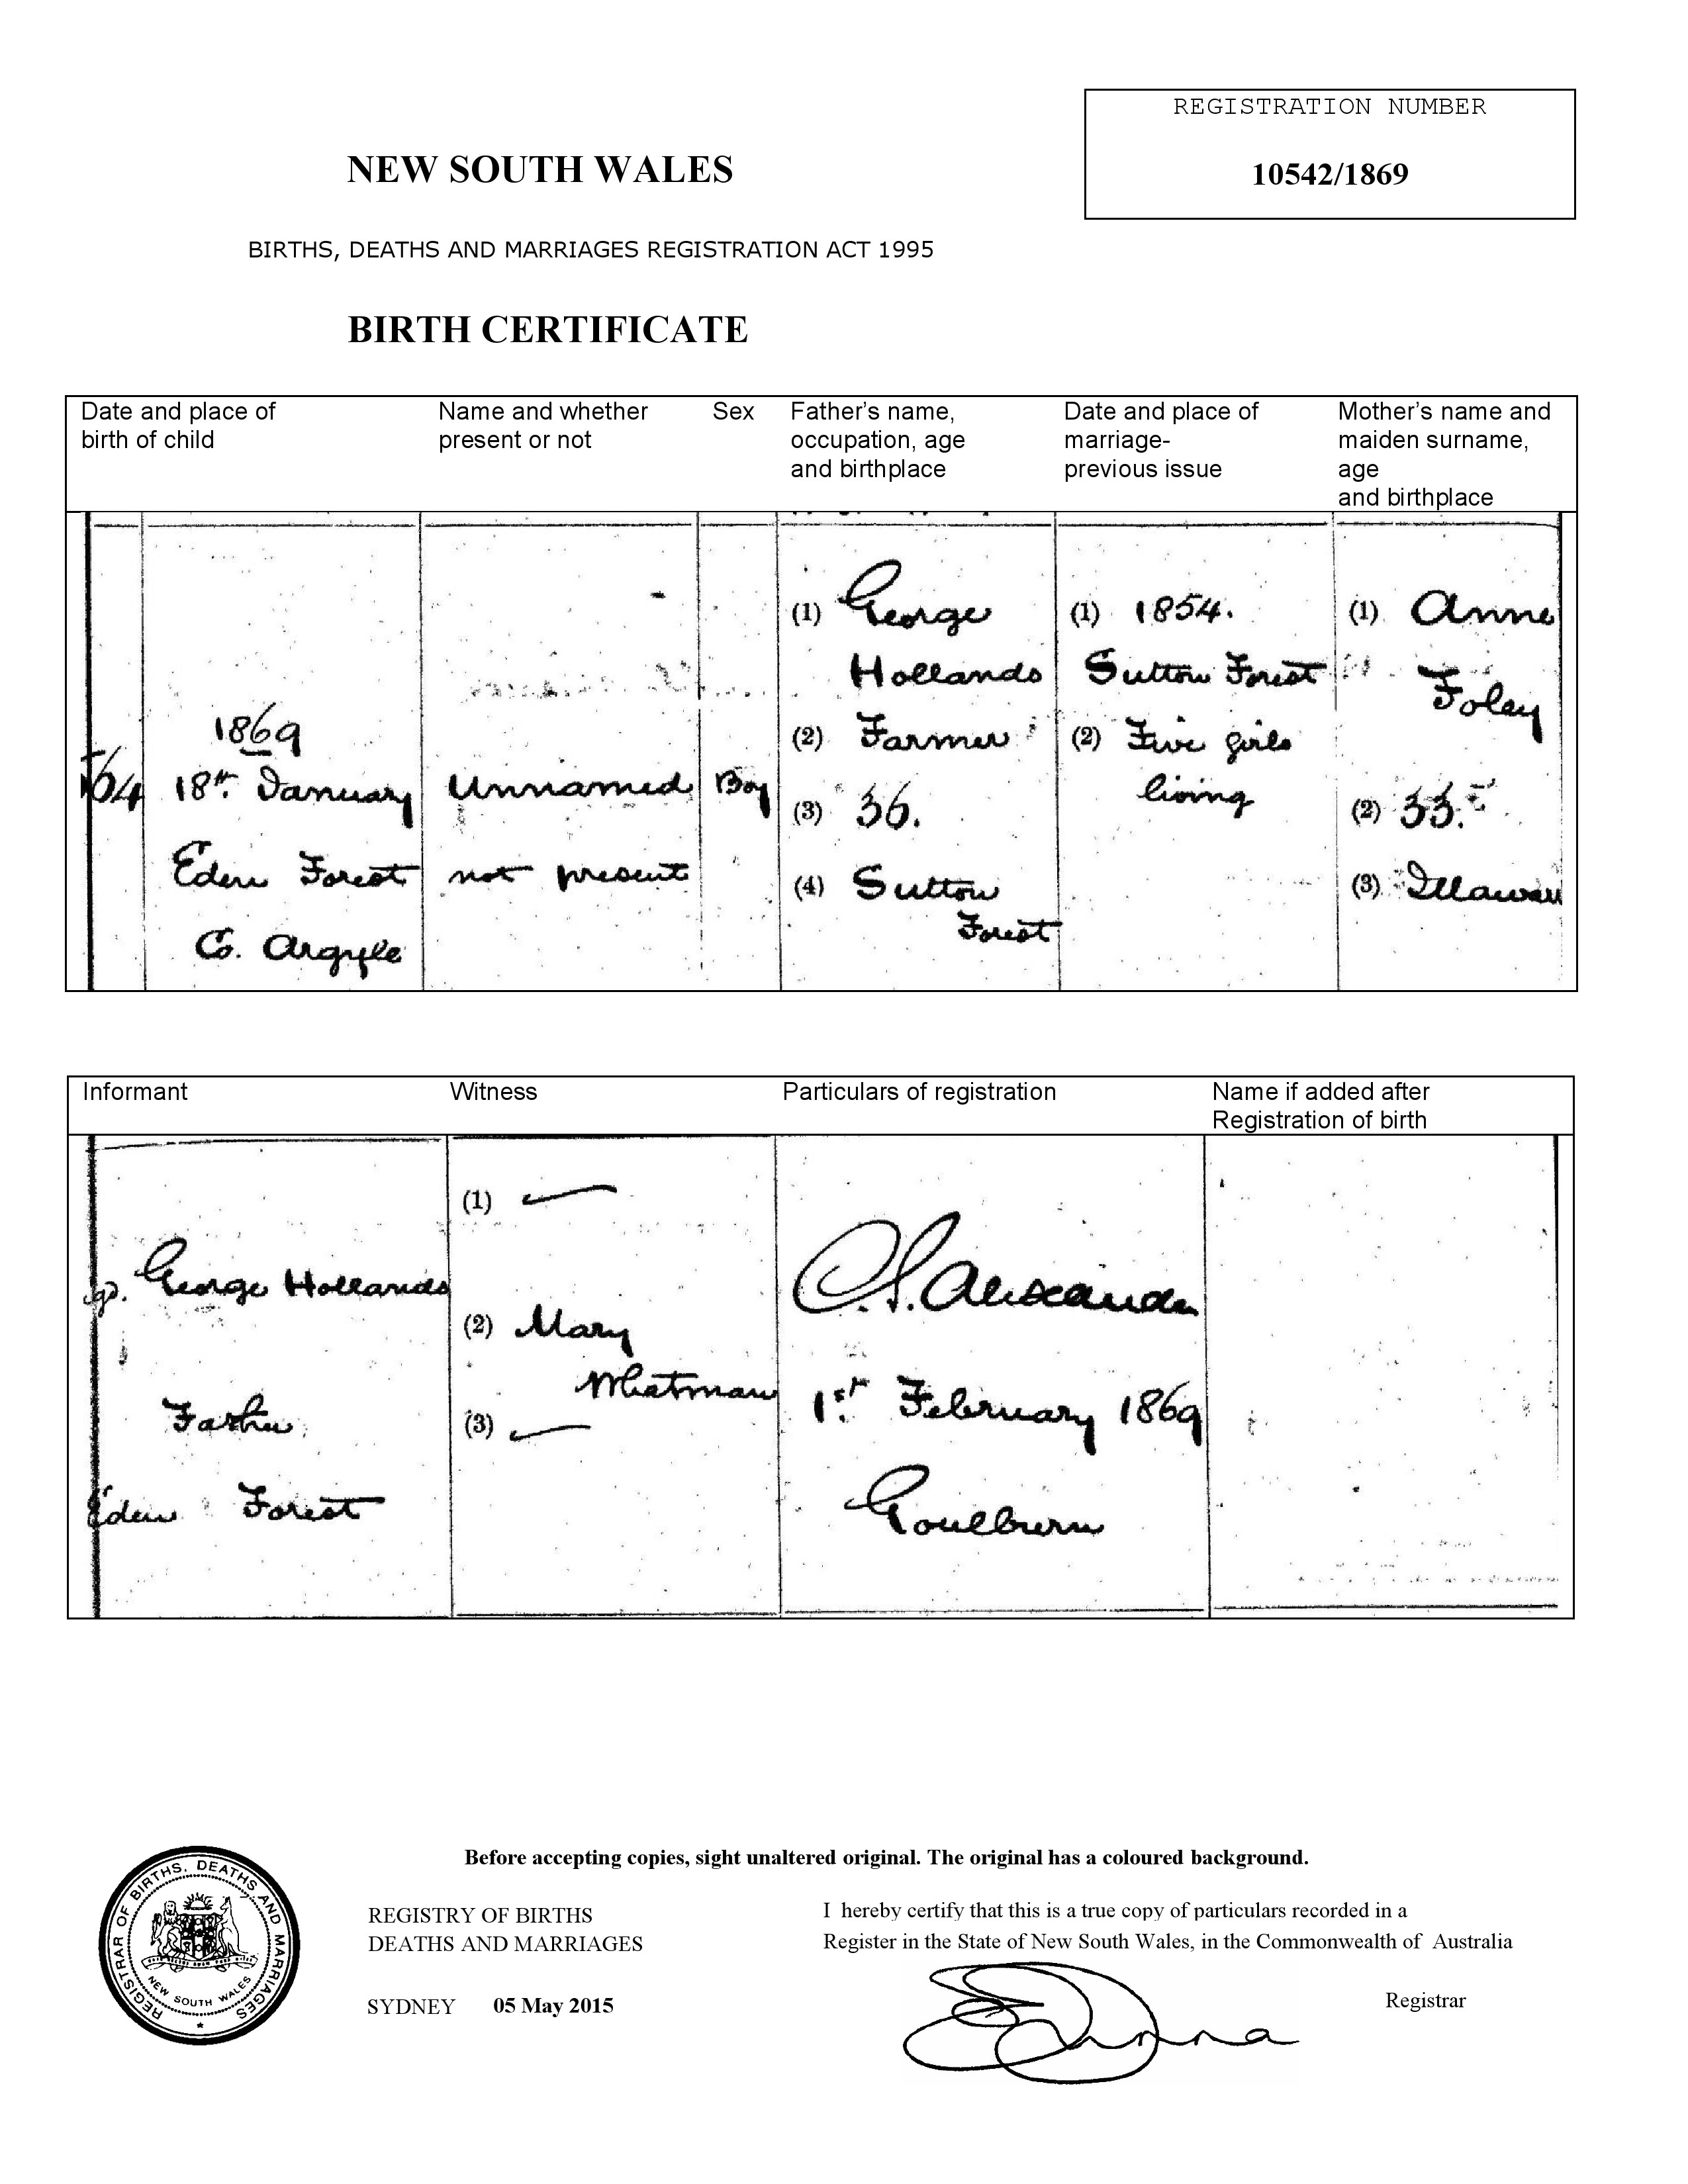 REGISTRATION NUMBER
10542/1869
NEW SOUTH WALES
BIRTHS, DEATHS AND MARRIAGES REGISTRATION ACT 1995
BIRTH CERTIFICATE
Date and place of
birth of child
Name and whether
present or not
Sex
Father's name,
occupation, age
and birthplace
Date and place of
marriage-
previous issue
Mother's name and
maiden surname,
age
and birthplace
1869
18th January
Eden Forest
Co. Argyle
Unnamed
not present
Boy
(1) George
Hollands
(2) Farmer
(3) 36.
(4) Sutton
Forest
(1) 1854.
Sutton Forest
(2) Five girls
living
(1) Anne
Foley
(2) 33.
(3)
Informant
Witness
Particulars of registration
Name if added after
Registration of birth
George Hollands
Father
Eden Forest
(1)
(2) Mary
Whatman
(3)
Alexander
1st February 1869
Goulburn
Before accepting copies, sight unaltered original. The original has a coloured background.
REGISTRAR OF BIRTHS, DEATHS AND MARRIAGES
NEW SOUTH WALES
REGISTRY OF BIRTHS
DEATHS AND MARRIAGES
SYDNEY 05 May 2015
I hereby certify that this is a true copy of particulars recorded in a
Register in the State of New South Wales, in the Commonwealth of Australia
Registrar